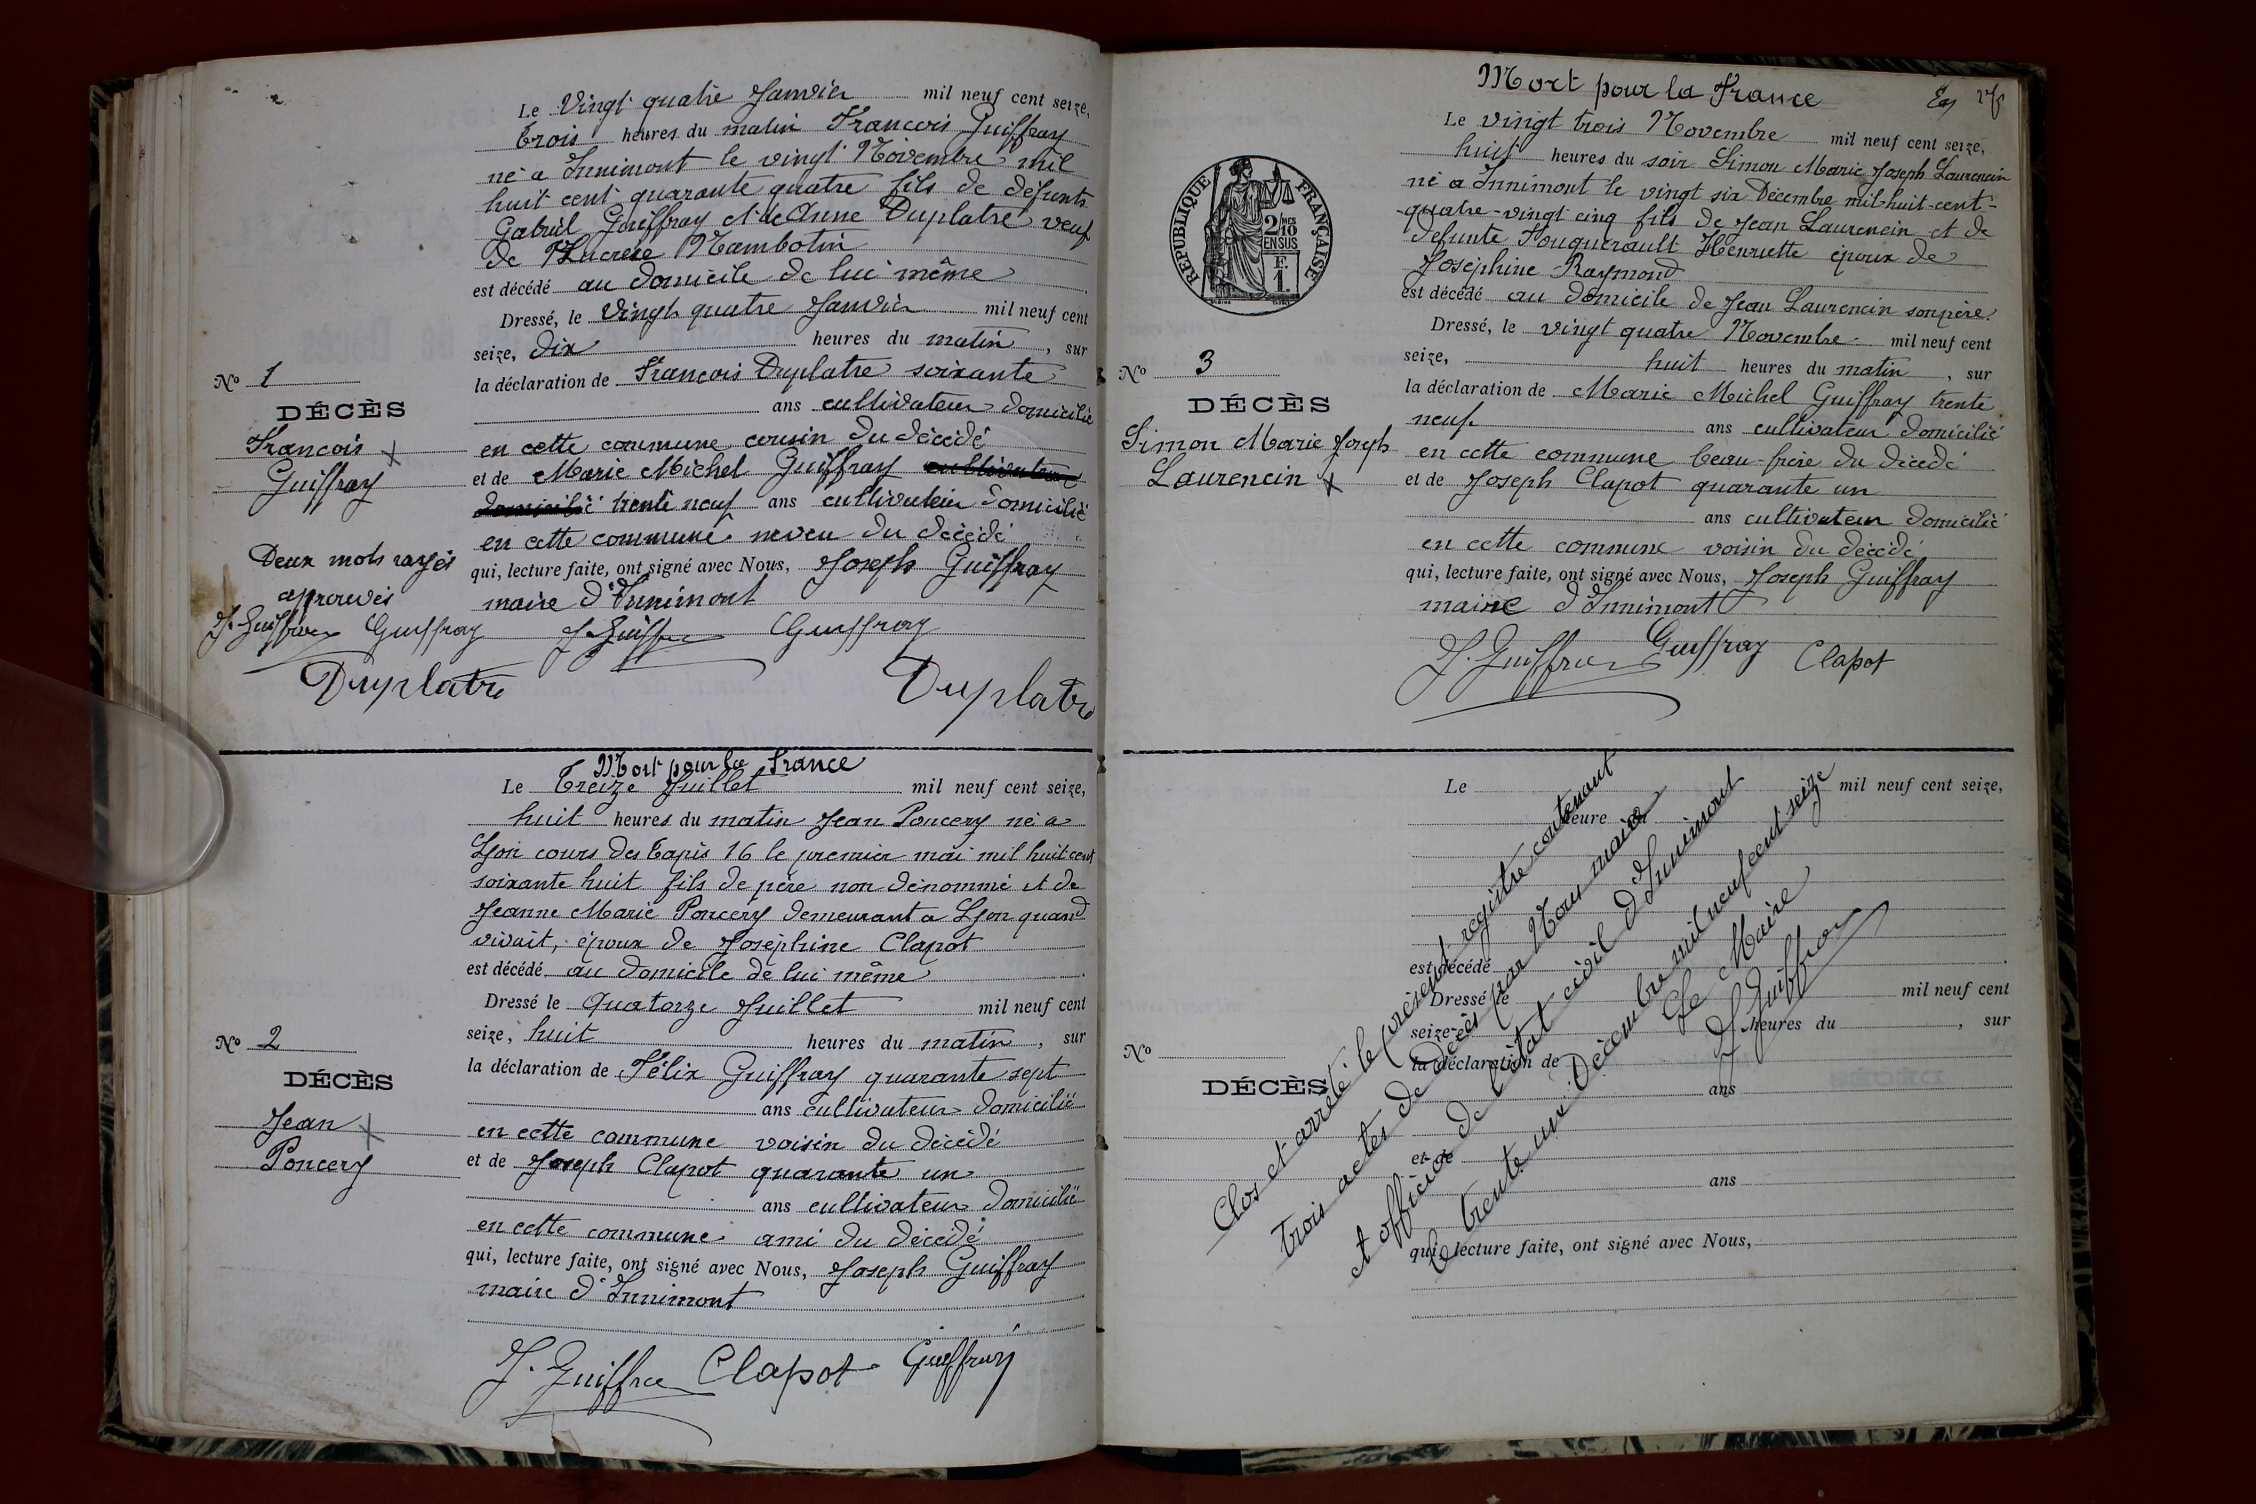 Le Vingt quatre Janvier mil neuf cent seize,
trois heures du matin Francois Guiffray
né a Innimont le vingt Novembre mil
huit cent quarante quatre fils de défunts
Gabriel Guiffray et de Anne Duplatre veuf
de Lucrèce Mambotin
est décédé au domicile de lui même
Dressé, le Vingt quatre Janvier mil neuf cent
seize, dix heures du matin, sur
la déclaration de Francois Duplatre soixante
ans cultivateur domicilié
en cette commune cousin du décédé
et de Marie Michel Guiffray cultivateur
domicilié trente neuf ans cultivateur domicilié
en cette commune neveu du décédé
qui, lecture faite, ont signé avec Nous, Joseph Guiffray
maire d'Innimont
J. Guiffray Guiffray
Duplatre
No 1
DÉCÈS
Francois
Guiffray
Deux mots rayés
aprouvés
J. Guiffray Guiffray
Duplatre
Mort pour la France
Le Treize Juillet mil neuf cent seize,
huit heures du matin Jean Poncery né a
Lyon cours des Tapis 16 le premier mai mil huit cent
soixante huit fils de père non dénommé et de
Jeanne Marie Poncery demeurant a Lyon quand
vivait, époux de Joséphine Clapot
est décédé au domicile de lui même
Dressé le quatorze Juillet mil neuf cent
seize, huit heures du matin, sur
la déclaration de Félix Guiffray quarante sept
ans cultivateur domicilié
en cette commune voisin du décédé
et de Joseph Clapot quarante un
ans cultivateur domicilié
en cette commune ami du décédé
qui, lecture faite, ont signé avec Nous, Joseph Guiffray
maire d'Innimont
J. Guiffray Clapot Guiffray
No 2
DÉCÈS
Jean
Poncery
Mort pour la France
Le vingt trois Novembre mil neuf cent seize,
huit heures du soir Simon Marie Joseph Laurencin
né a Innimont le vingt six Décembre mil-huit-cent-
quatre-vingt cinq fils de Jean Laurencin et de
defunte Fouquerault Henriette époux de
Joséphine Raymond
est décédé au domicile de Jean Laurencin son père.
Dressé, le vingt quatre Novembre mil neuf cent
seize, huit heures du matin, sur
la déclaration de Marie Michel Guiffray trente
neuf ans cultivateur domicilié
en cette commune beau-frère du décédé
et de Joseph Clapot quarante un
ans cultivateur domicilié
en cette commune voisin du décédé
qui, lecture faite, ont signé avec Nous, Joseph Guiffray
maire d'Innimont
J. Guiffray Guiffray Clapot
RÉPUBLIQUE FRANÇAISE
2/10
EN SUS
F.
1.
No 3
DÉCÈS
Simon Marie Joseph
Laurencin
Le mil neuf cent seize,
heure du
est décédé
Dressé le mil neuf cent
seize, heures du , sur
la déclaration de
ans
et de
ans
qui, lecture faite, ont signé avec Nous,
No
DÉCÈS
Clos et arrêté le présent registre contenant
trois actes de décès par Nous maire
et officier de l'état civil d'Innimont
le trente un Décembre mil neuf cent seize
Le Maire
J. Guiffray